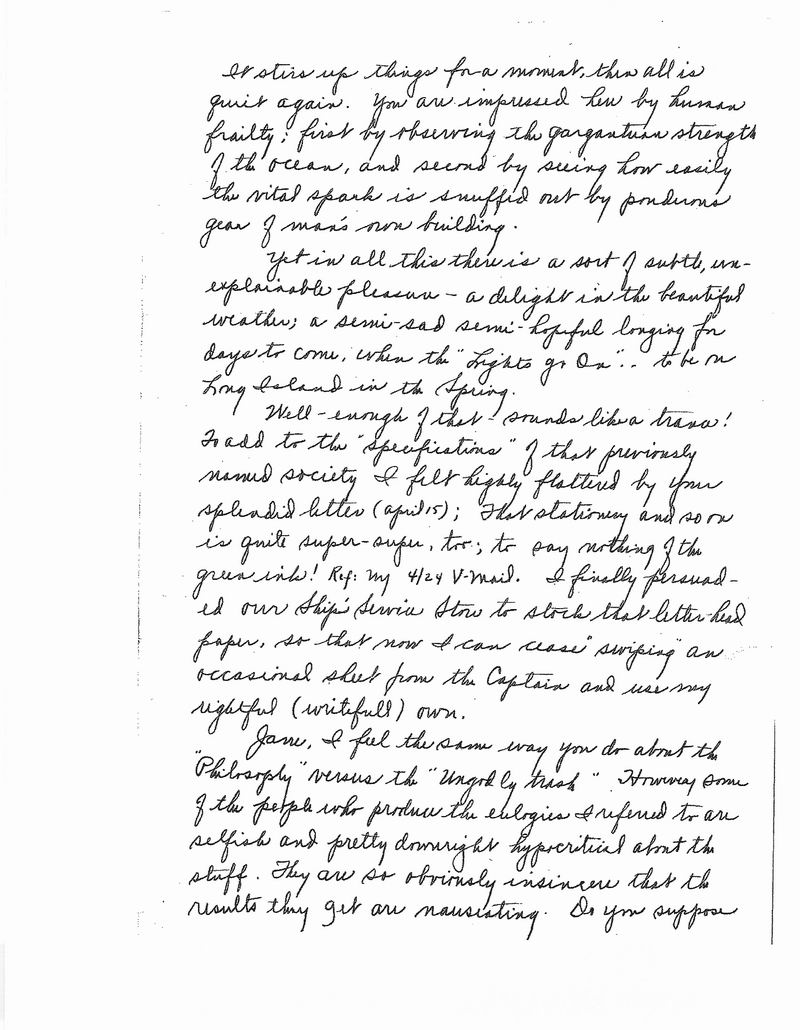 It stirs up things for a moment, then all is
quiet again. You are impressed here by human
frailty; first by observing the gargantuan strength
of the ocean, and second by seeing how easily
the vital spark is snuffed out by ponderous
gear of man's own building.
Yet in all this there is a sort of subtle, un-
explainable pleasure - a delight in the beautiful
weather; a semi-sad semi-hopeful longing for
days to come, when the "Lights go On".. to be on
Long Island in the Spring.
Well - enough of that - sounds like a trance!
To add to the "specifications" of that previously
named society I felt highly flattered by your
splendid letter (April 15); That stationery and so on
is quite super-super, too; to say nothing of the
green ink! Ref: My 4/24 V-Mail. I finally persuad-
ed our Ship's Service Store to stock that letter-head
paper, so that now I can cease "swiping" an
occasional sheet from the Captain and use my
rightful (writefull) own.
Jane, I feel the same way you do about the
"Philosophy" versus the "Ungodly trash" However some
of the people who produce the eulogies I referred to are
selfish and pretty downright hypocritical about the
stuff. They are so obviously insincere that the
results they get are nauseating. Do you suppose